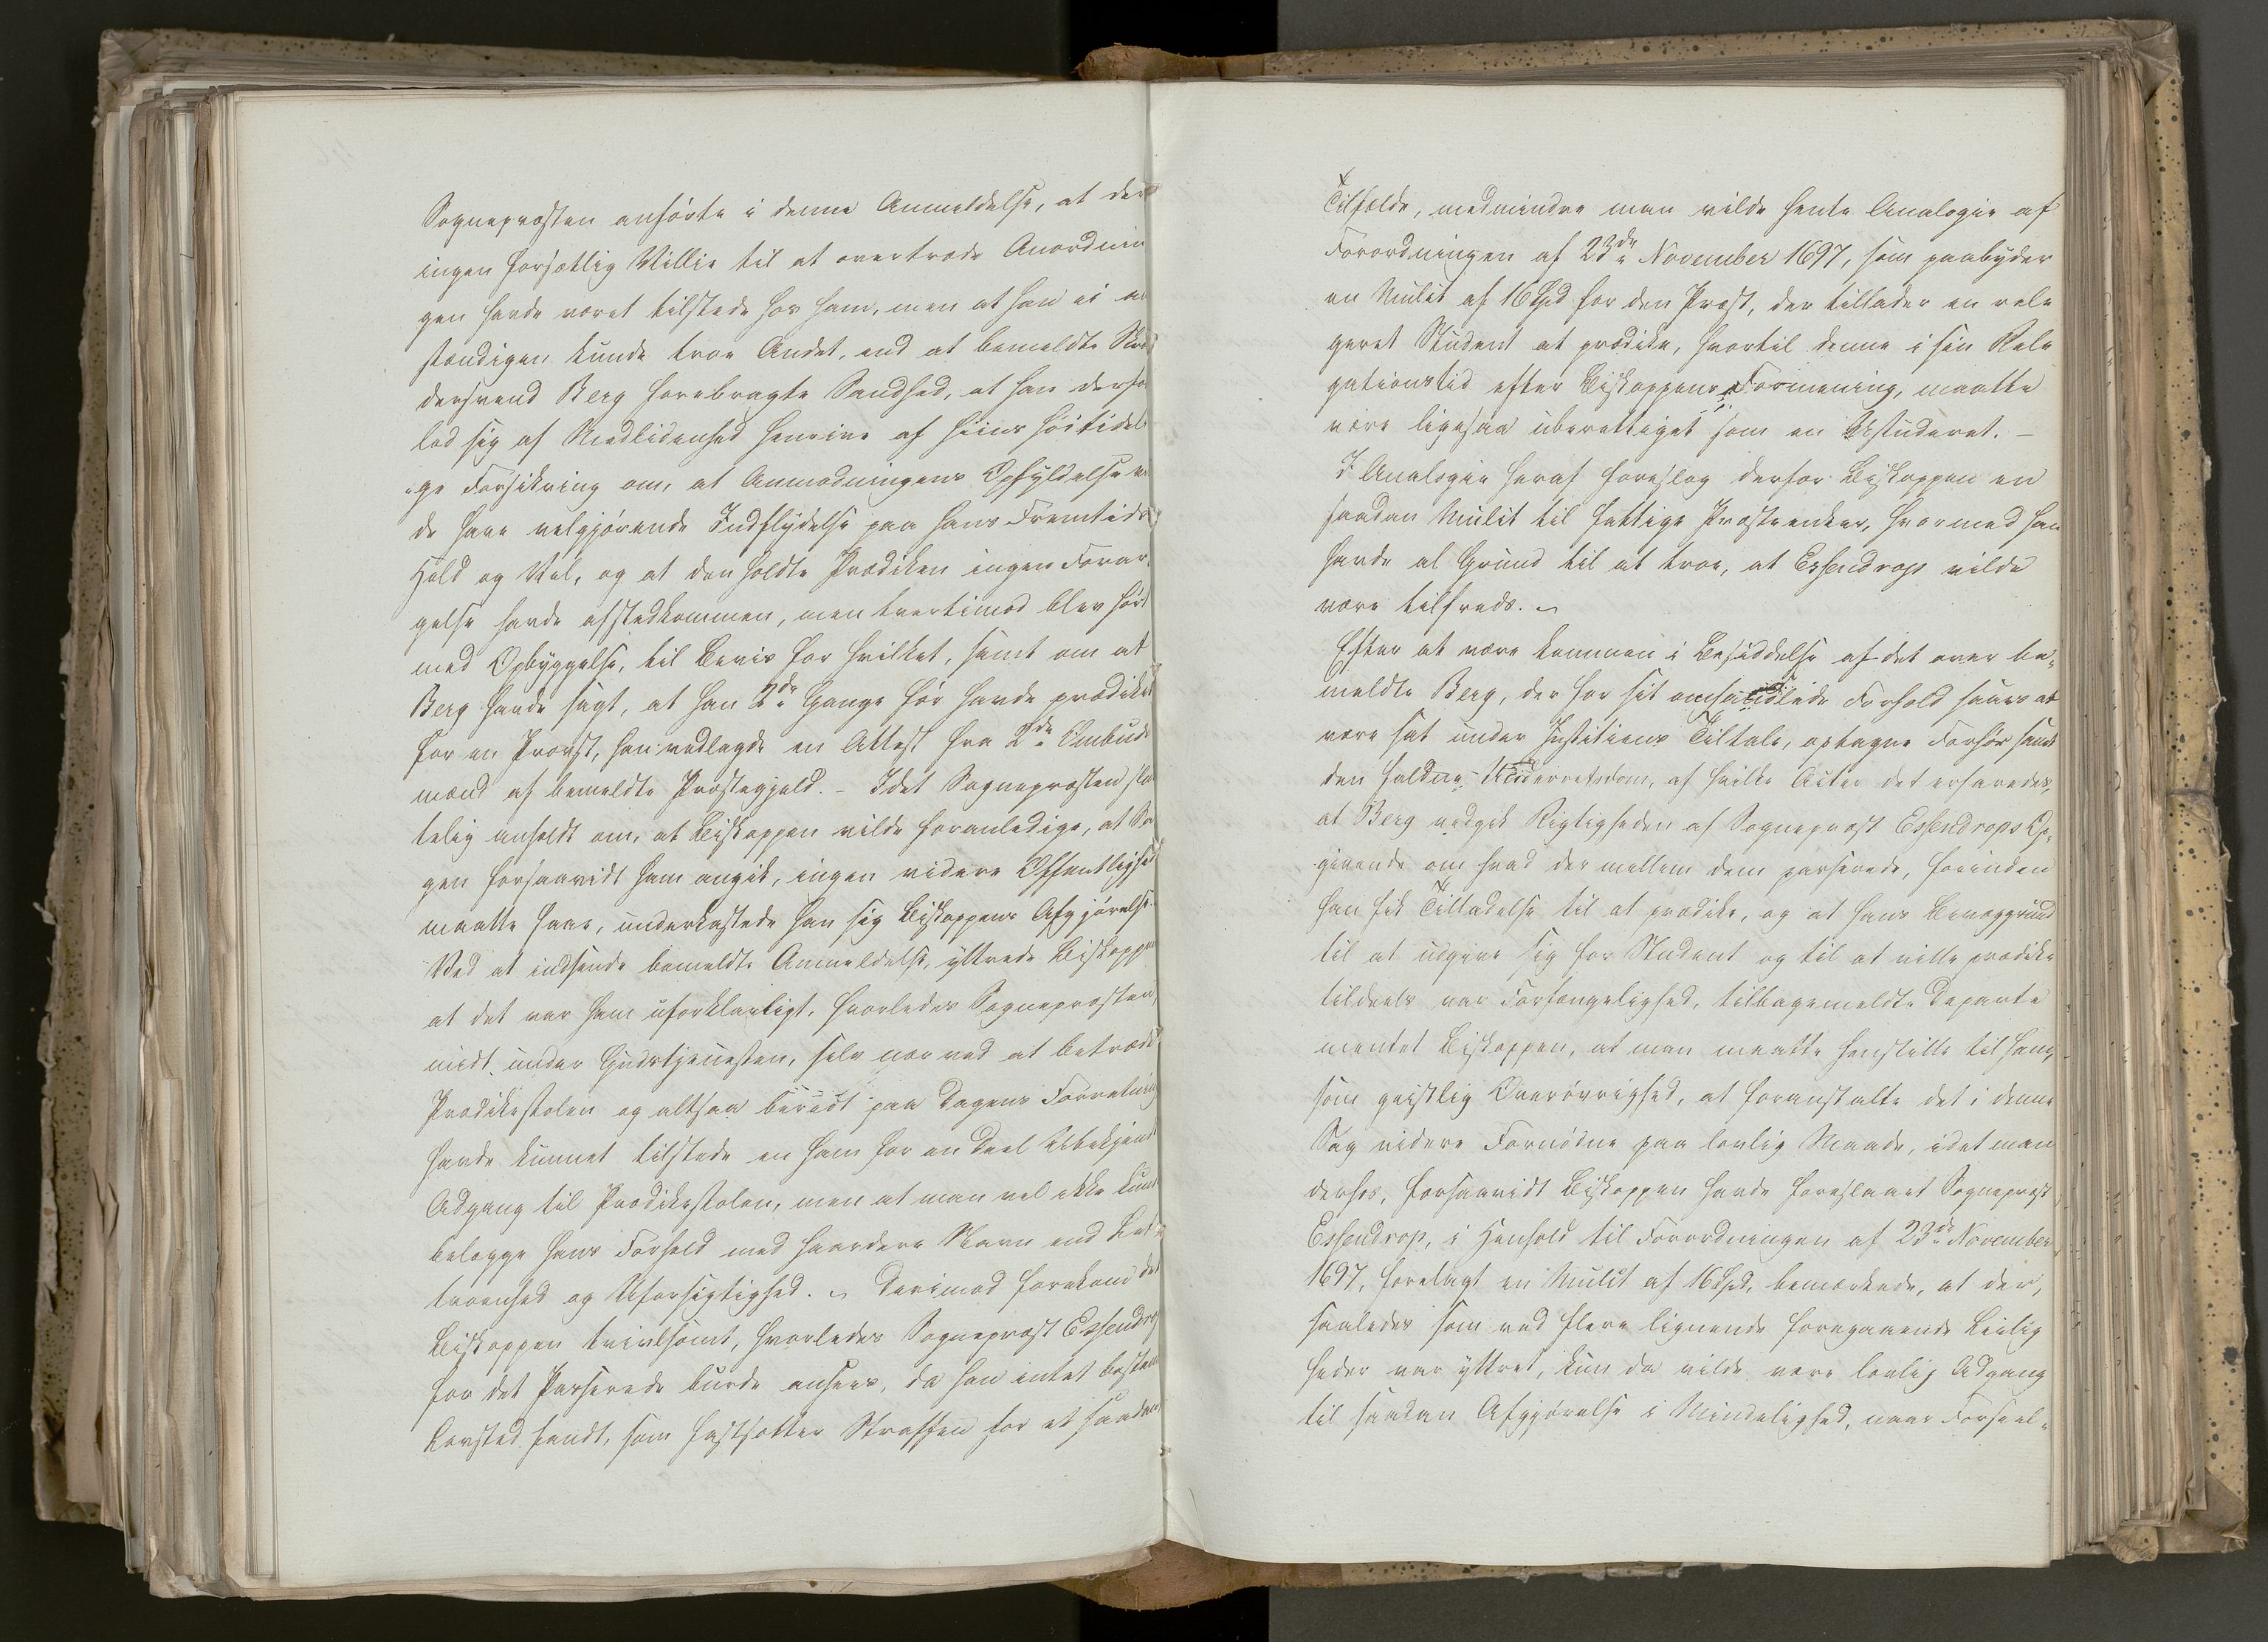 Sognepræsten anførte i denne Anmeldelse, at der
ingen forsætlig Villie til at overtræde Anordnin
gen havde været tilstede hos ham, men at han ei
stændigen kunde troe Andet, end at bemeldte
dersvend Berg forebragte Sandhed, at han derfo
lod sig af Medlidenhed henrive af hiins høitide
ge Forsikring om, at Anmodningens Opfyldelse
de have velgjørende Indflydelse paa hans Fremtids
Held og Vel, og at den holdte Prædiken ingen Forar
gelse havde afstedkommen, men tvertimod blev hørt
med Opbyggelse, til Beviis for hvilket, samt om at
Berg havde sagt, at han 2de Gange før havde prædiket
for en Provst, han vedlagde en Attest fra 2de Ombuds
mænd af bemeldte Præstegjeld. – Idet Sognepræsten
telig anholdt om, at Biskoppen vilde foranledige, at Sa
gen forsaavidt ham angik, ingen videre Offentlighed
maatte faae, underkastede han sig Biskoppens Afgjørelse.
Ved at indsende bemeldte Anmeldelse, yttrede Biskoppen
at det var ham uforklarligt, hvorledes Sognepræsten,
midt under Gudstjenesten, selv nær ved at betræde
Prædikestolen og altsaa beredt paa Dagens Forretning
havde kunnet tilstede en ham for en Deel Ubekjendt
Adgang til Prædikestolen, men at man vel ikke kunde
belægge hans Forhold med haardere Navn end Let-
troenhed og Uforsigtighed. – Derimod forekom det
Biskoppen tvivlsomt, hvorledes Sognepræst Essendrop
for det Passerede burde ansees, da han intet bestemt
Lovsted fandt, som fastsætter Straffen for et saadant
Tilfælde, medmindre man vilde hente Analogie af
Forordningen af 23de November 1697, som paabyder
en Mulct af 16 Spd for den Præst, der tillader en rele
geret Student at prædike, hvortil denne i sin Rele
gationstid efter Biskoppens Formening, maatte
være ligesaa uberettiget som en Ustuderet. –
I Analogie heraf foreslog derfor Biskoppen en
saadan Mulct til fattige Præsteenker, hvormed han
havde al Grund til at troe, at Essendrop vilde
være tilfreds. –
Efter at være kommen i Besiddelse af det over be-
meldte Berg, der for sit omhandlede Forhold saaes at
være sat under Justitiens Tiltale, optagne Forhør samt
den faldne Underretsdom, af hvilke Acter det erfaredes,
at Berg vedgik Rigtigheden af Sognepræst Essendrops Op-
givende om hvad der mellem dem passerede, forinden
han fik Tilladelse til at prædike, og at hans Bevæggrund
til at udgive sig for Student og til at ville prædike
tildeels var Forfængelighed, tilbagemeldte Departe
mentet Biskoppen, at man maatte henstille til ham,
som geistlig Overøvrighed, at foranstalte det i denne
Sag videre Fornødne paa lovlig Maade, idet man
derhos, forsaavidt Biskoppen havde foreslaaet Sognepræst
Essendrop, i Henhold til Forordningen af 23de November
1697, forelagt en Mulct af 16 Spd, bemærkede, at der,
saaledes som ved flere lignende foregaaende Leilig
heder var yttret, kun da vilde være lovlig Adgang
til saadan Afgjørelse i Mindelighed, naar Forseel-